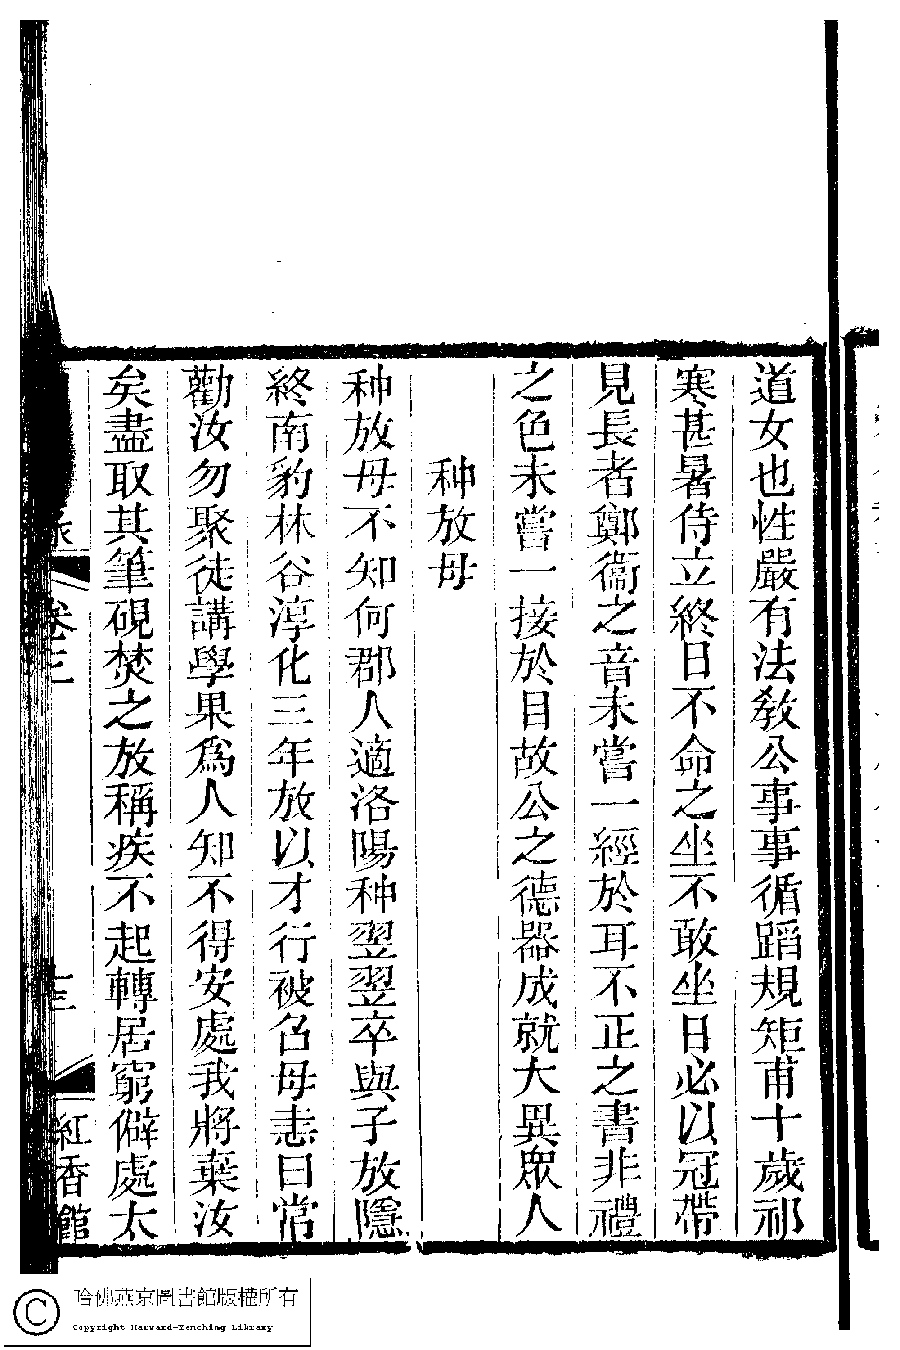 道女也性嚴有法敎公事事循蹈規矩甫十歲祁
寒甚暑侍立終日不命之坐不敢坐日必以冠帶
見長者鄭衞之音未嘗一經於耳不正之書非禮
之色未嘗一接於目故公之德器成就大異眾人
种放母
种放母不知何郡人適洛陽种翌翌卒與子放隱
終南豹林谷淳化三年放以才行被召母恚曰常
勸汝勿聚徒講學果爲人知不得安處我將棄汝
矣盡取其筆硯焚之放稱疾不起轉居窮僻處太
卷三
十三
紅香館
哈佛燕京圖書館版權所有
Copyright Harvard-Yenching Library